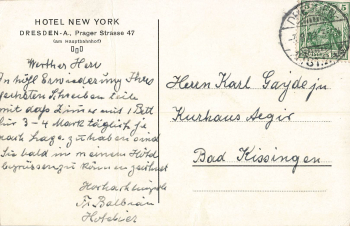 HOTEL NEW YORK
DRESDEN-A., Prager Strasse 47
(am Hauptbahnhof)
Werther Herr
In höfl. Erwiederung Ihres
geehrten Schreiben teile
mit daß Zimmer mit 1 Bett
für 3-4 Mark täglich je
nach Lage zu haben sind
Sie bald in meinem Hotel
begrüssen zu können zeichnet
Hochachtungsvoll
Fr. Balbrian
Hotelier
Herrn Karl Gayde jn
Kurhaus Aegir
Bad Kissingen
5
DRESDEN